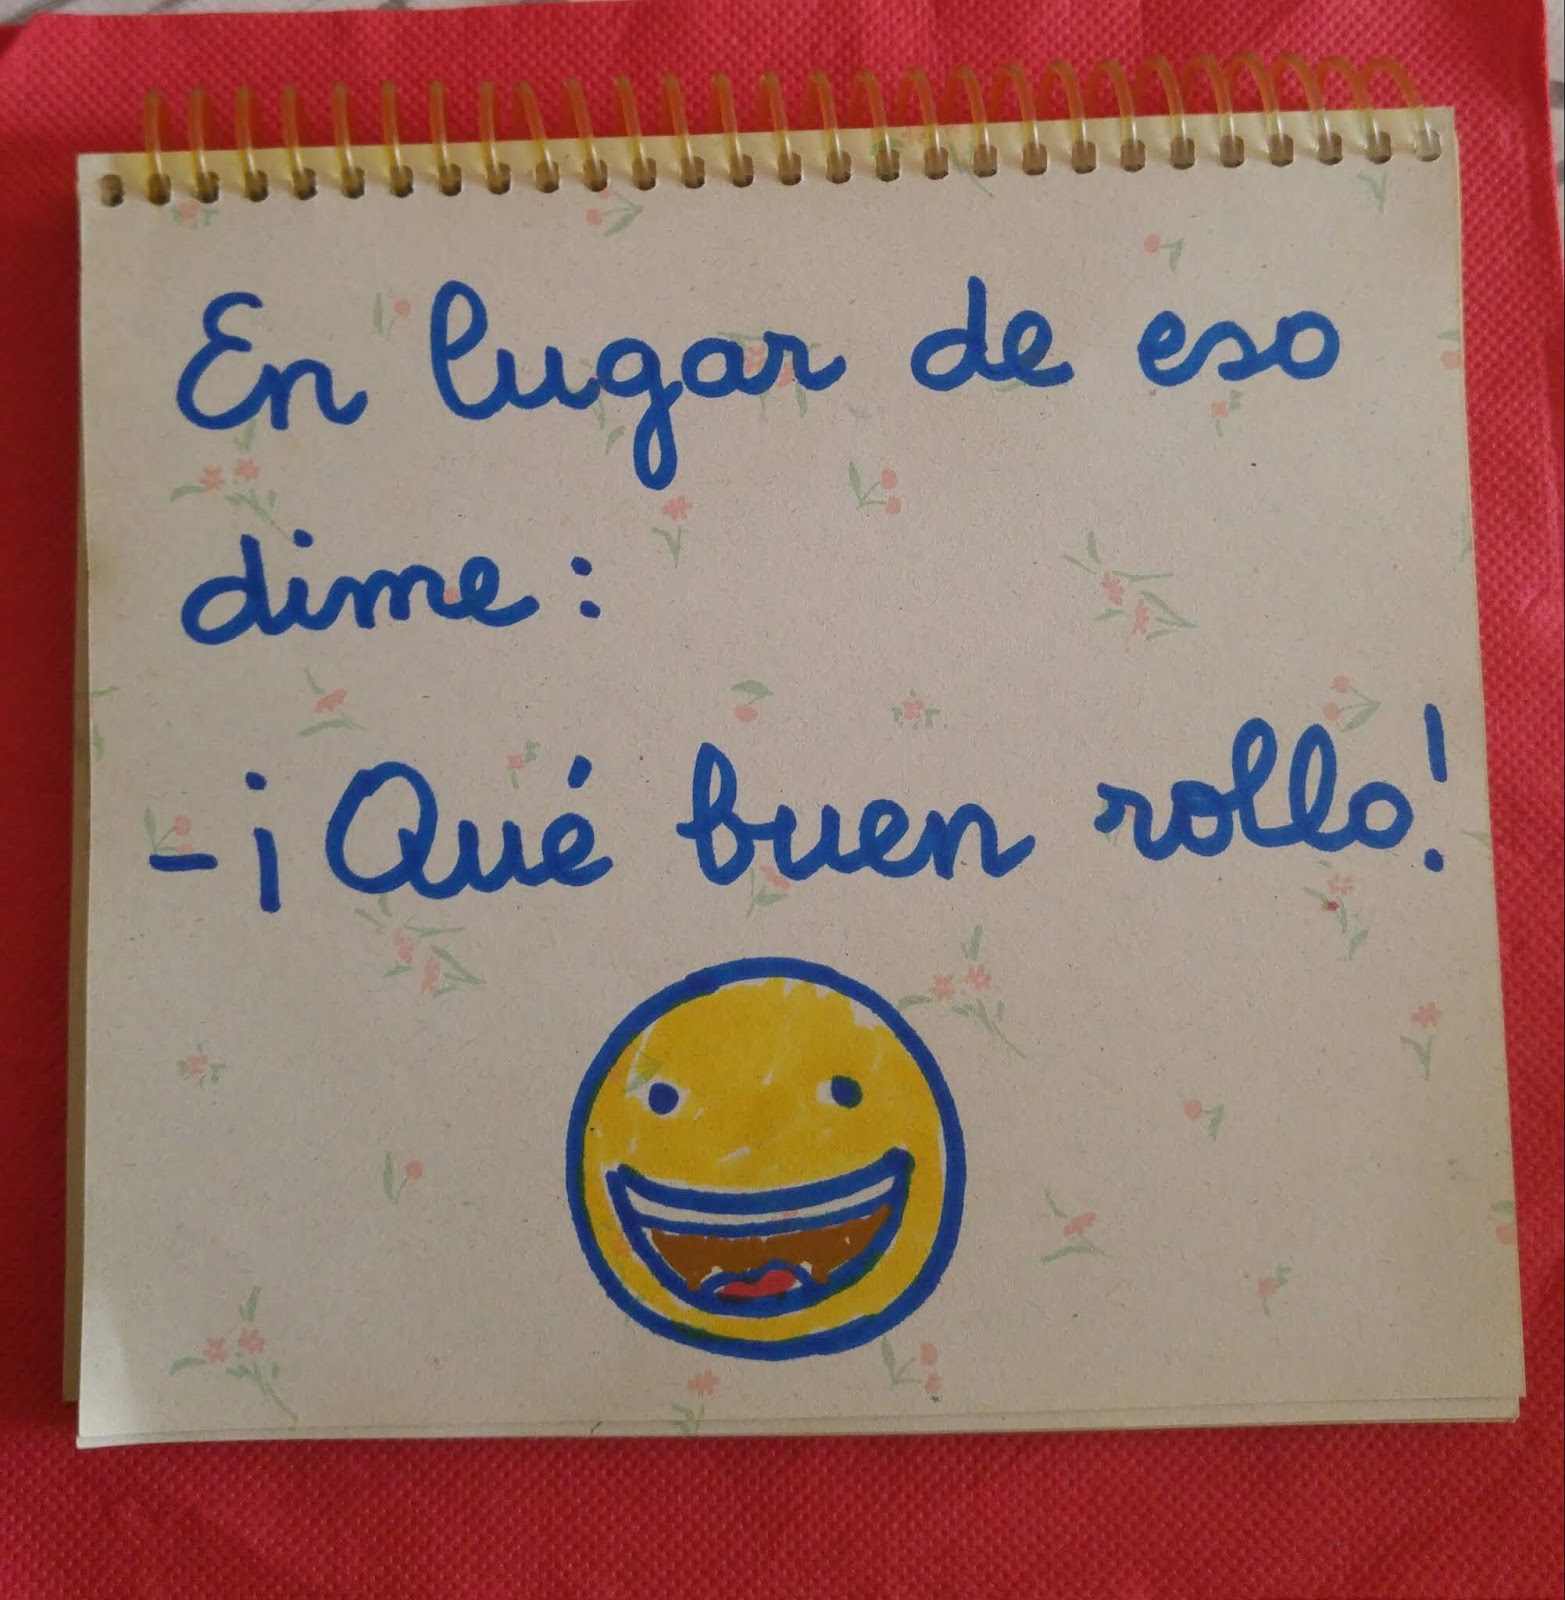 En lugar de eso
dime:
-¡Qué buen rollo!